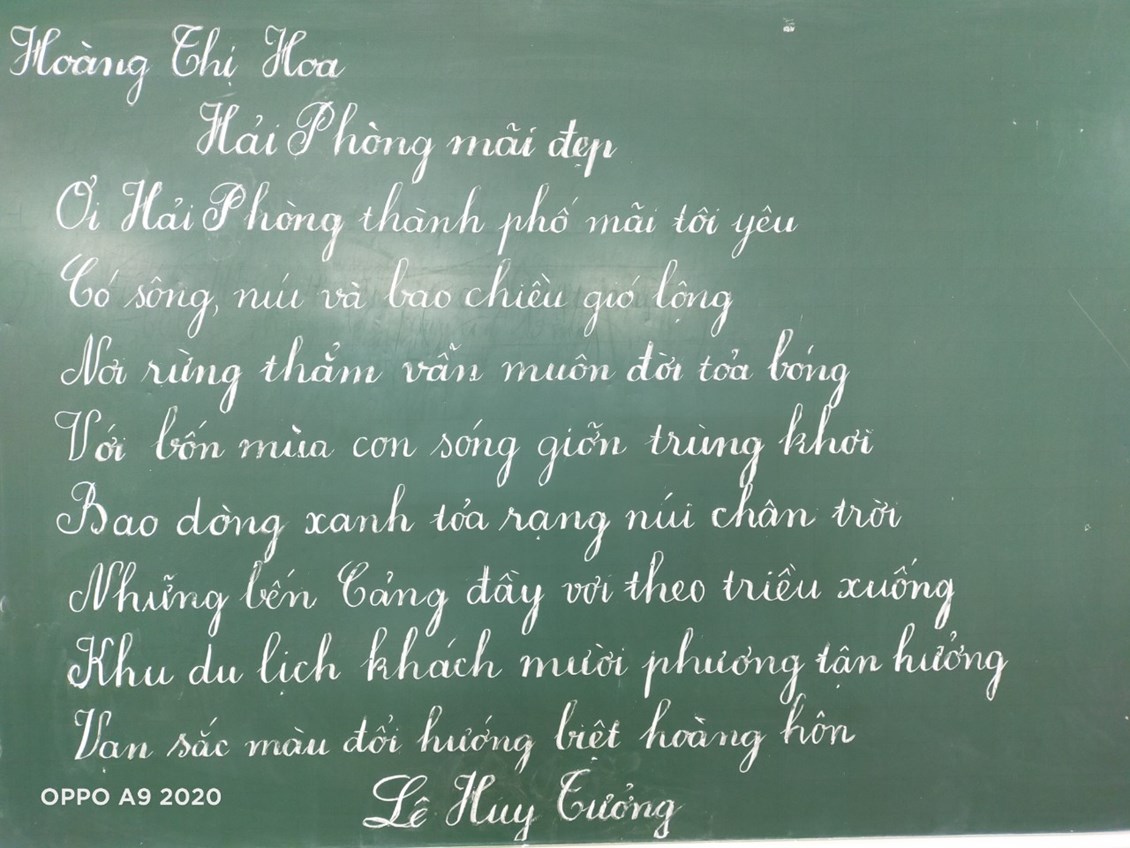 Hoàng Thị Hoa
Hải Phòng mãi đẹp
Ơi Hải Phòng thành phố mãi tôi yêu
Có sông, núi và bao chiều gió lộng
Nơi rừng thẳm vẫn muôn đời tỏa bóng
Với bốn mùa con sóng giỡn trùng khơi
Bao dòng xanh tỏa rạng núi chân trời
Những bến Cảng đầy vơi theo triều xuống
Khu du lịch khách mười phương tận hưởng
Vạn sắc màu đổi hướng biệt hoàng hôn
Lê Huy Tưởng
OPPO A9 2020